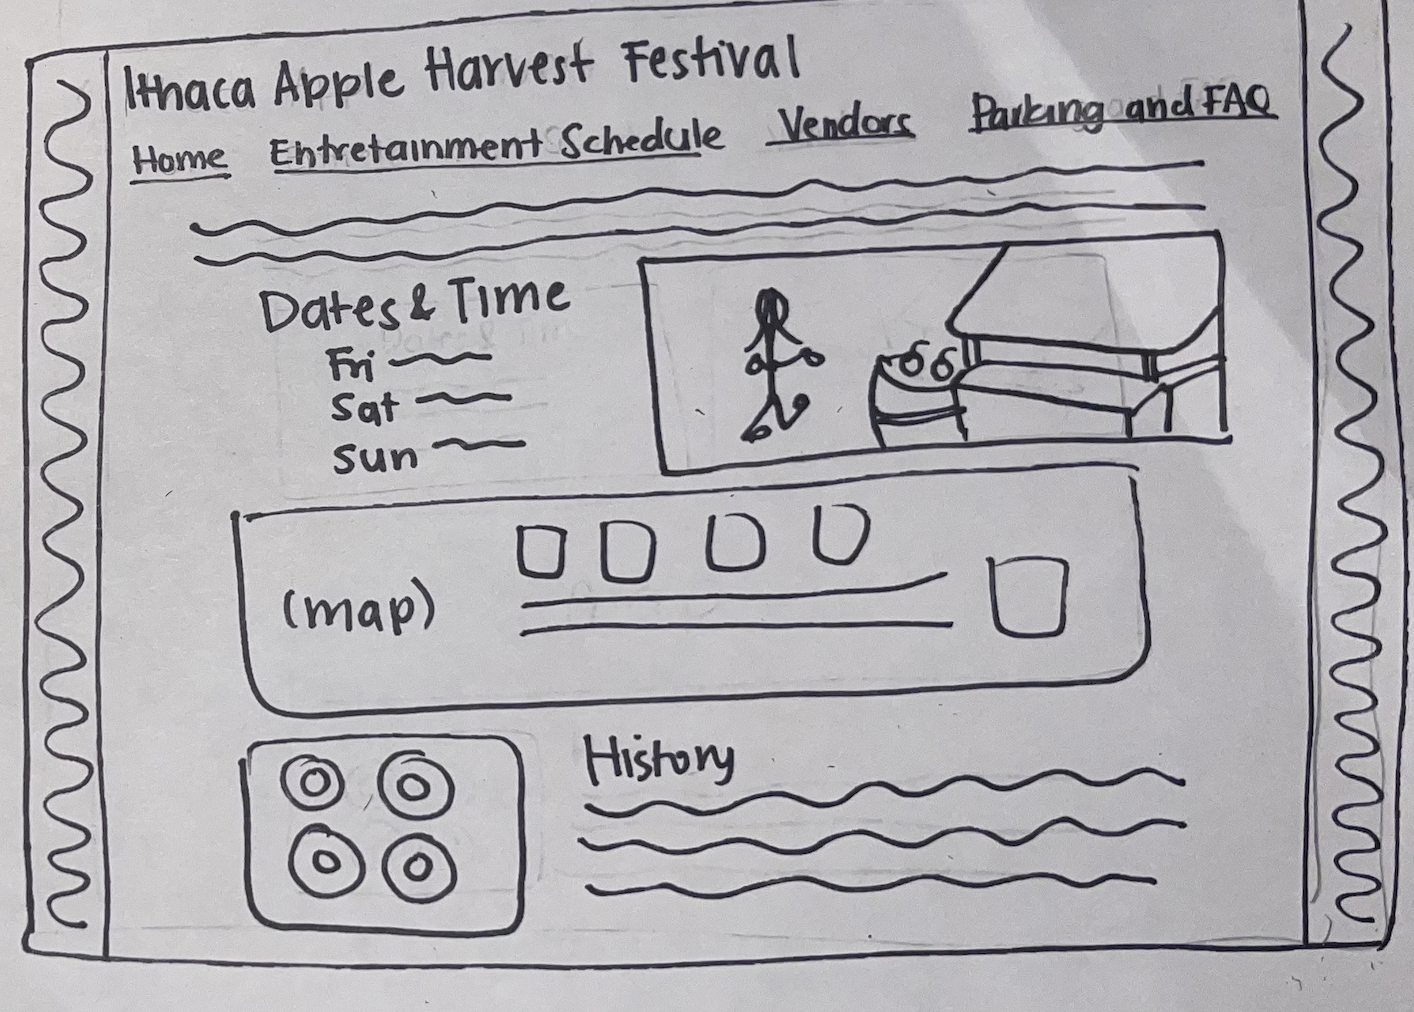 Ithaca Apple Harvest Festival
Home Entretainment Schedule Vendors Parking and FAQ
Dates & Time
Fri
Sat
Sun
(map)
History